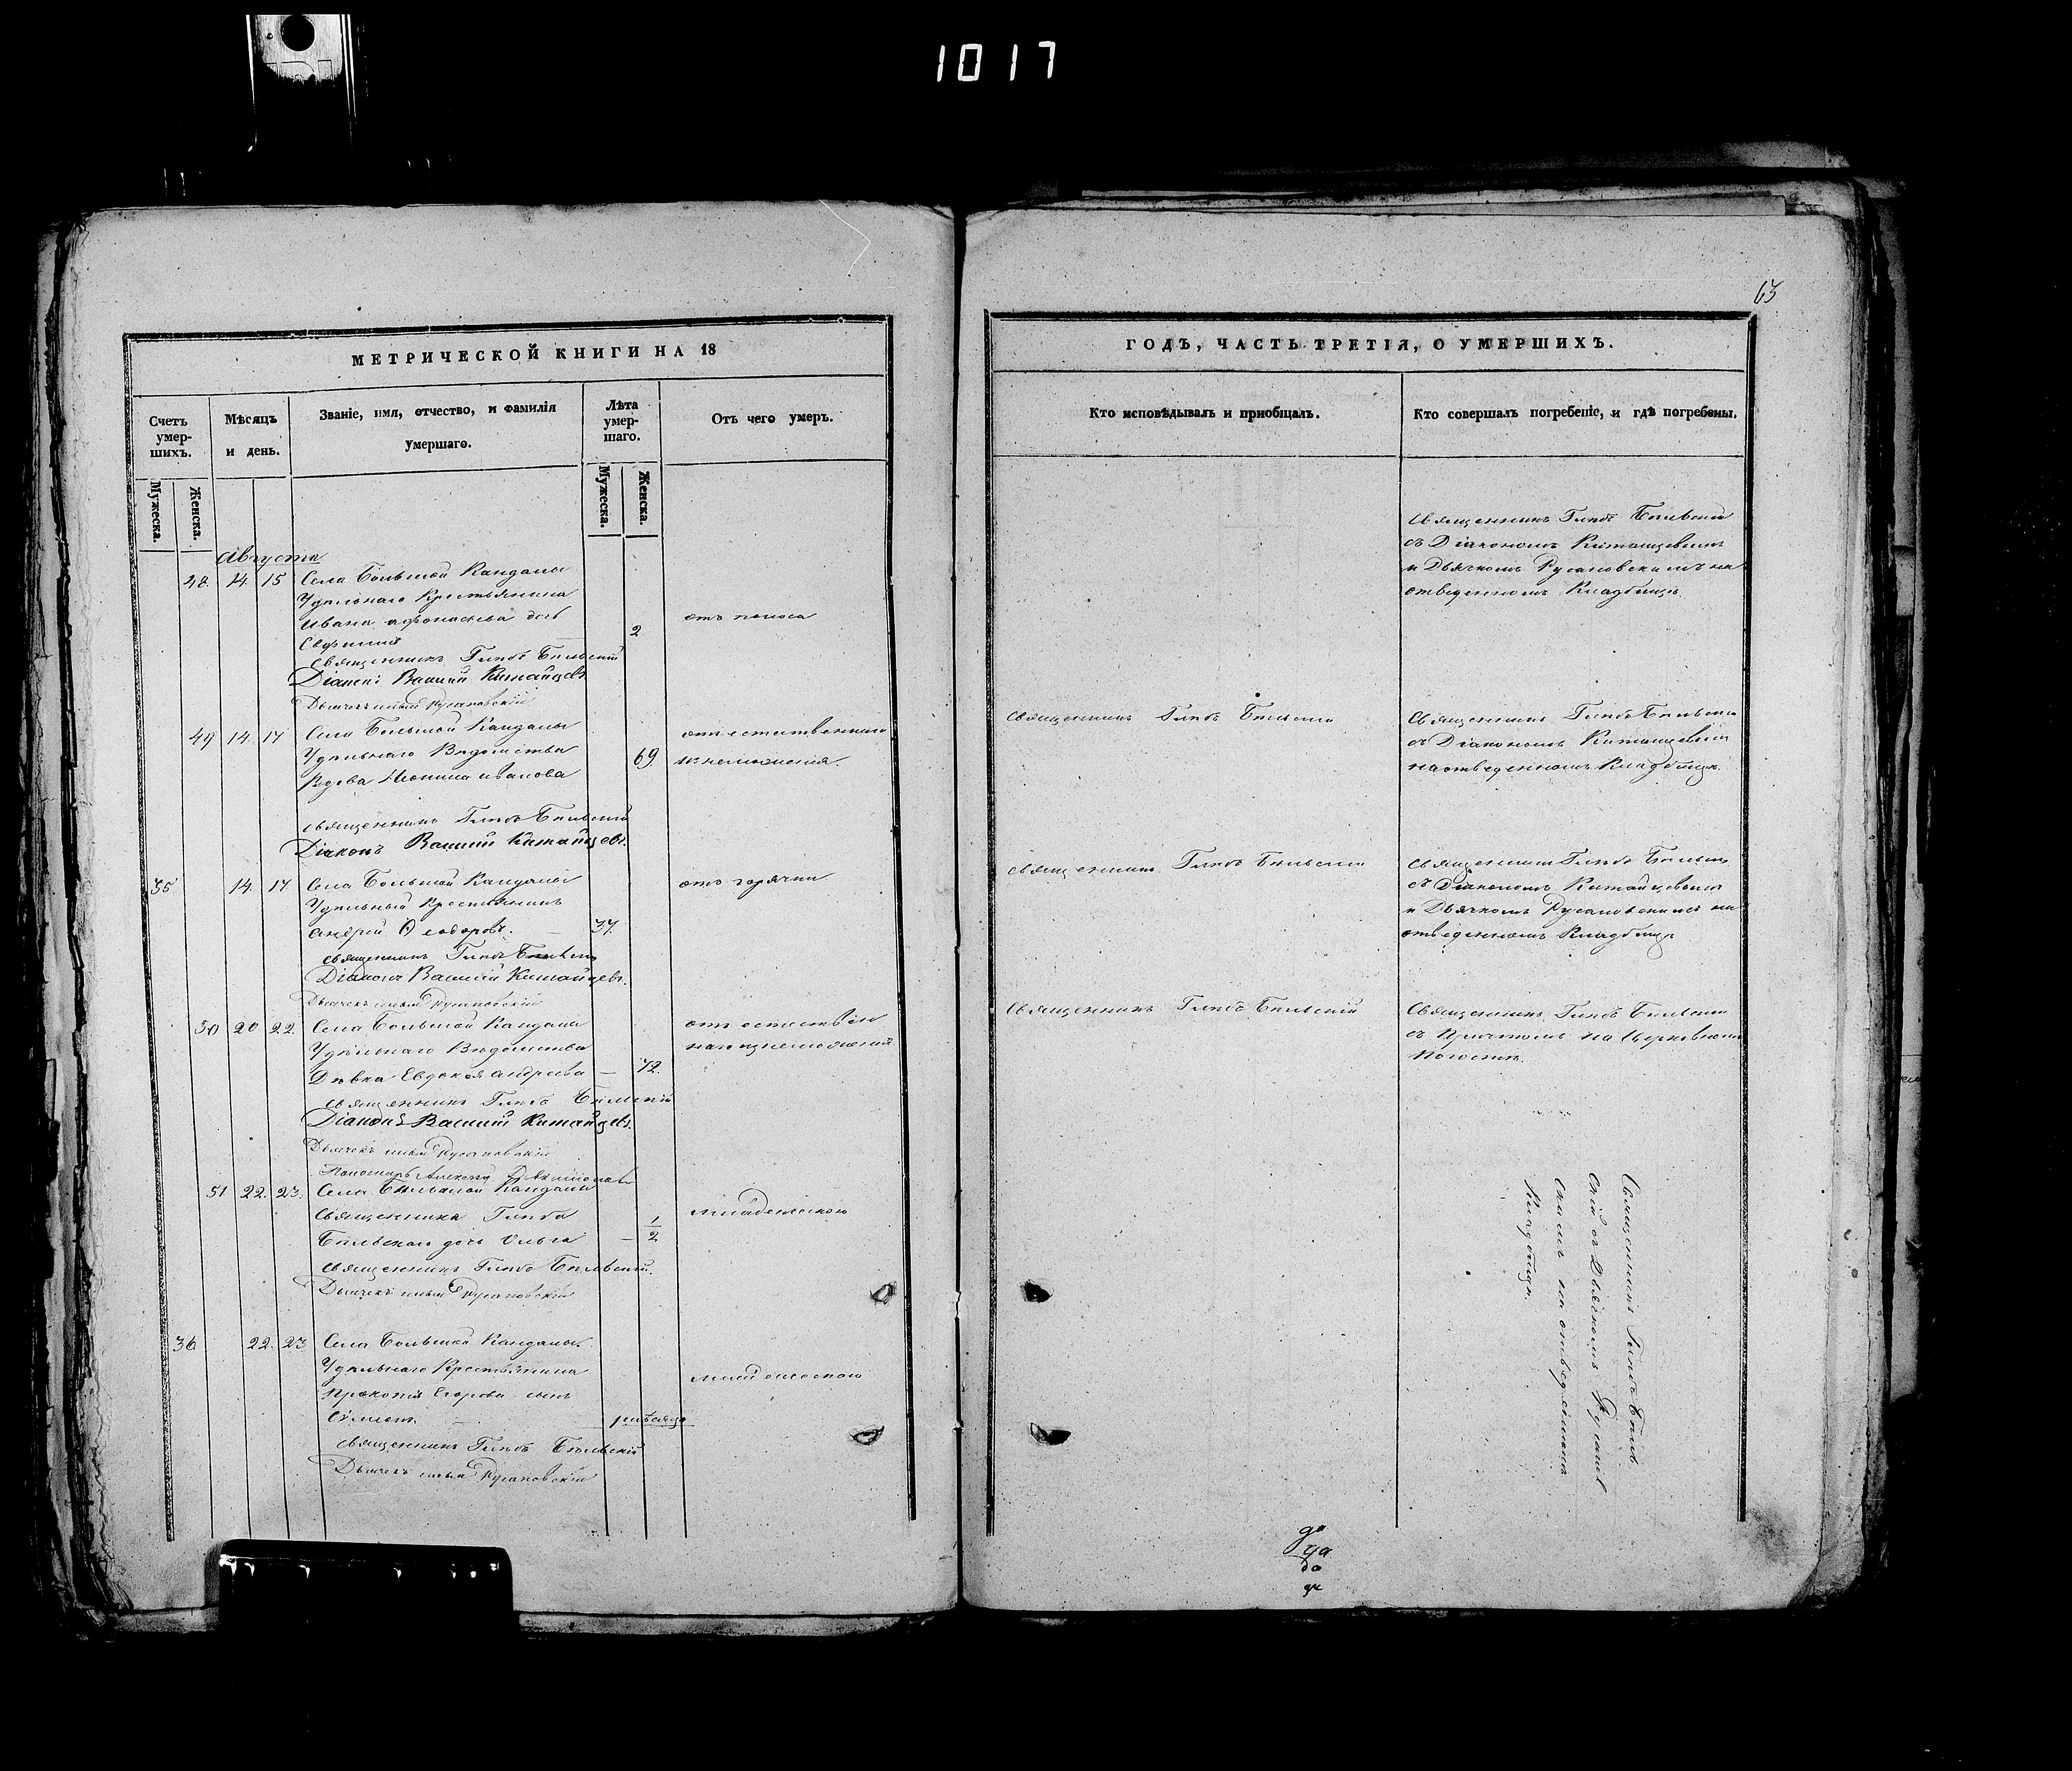 1017
63
МЕТРИЧЕСКОЙ КНИГИ НА 18
Счетъ умерших.
Мѣсяцъ и день.
Званіе, имя, отчество, и фамилія умершаго.
Лѣта умершаго.
Отъ чего умеръ.
Мужеска.
Женска.
Мужеска.
Женска.
Августа
48. 14. 15 Села Большой Кандалы
Удѣльнаго Крестьянина
Ивана Афонасьева дочь
2 отъ поноса
Священникъ Глѣбъ Бѣльскій
Діаконъ Василій Китайцевъ
Дьячекъ Русановскій
49 14. 17 Села Большой Кандалы отъ естественнаго
Удѣльнаго Вѣдомства 69. изнеможенія.
Вдова Иванова
Священникъ Глѣбъ Бѣльскій
Діаконъ Василій Китайцевъ.
35 14. 17 Села Большой Кандалы отъ горячки
Удѣльный Крестьянинъ
Андрей Ѳеодоровъ. 37.
Священникъ Глѣбъ Бѣльскій
Діаконъ Василій Китайцевъ.
Дьячекъ Русановскій
50 20 22. Села Большой Кандалы отъ естествен
Удѣльнаго Вѣдомства наго изнеможенія
Дѣвка Евдокія Андреева — 72.
Священникъ Глѣбъ Бѣльскій
Діаконъ Василій Китайцевъ.
Дьячекъ Русановскій
Пономарь Алексѣй
51 22. 23. Села Большой Кандалы
Священника Глѣба 1/2 младенческою
Бѣльскаго дочь Ольга —
Священникъ Глѣбъ Бѣльскій.
Дьячекъ Русановскій
36 22. 23 Села Большой Кандалы.
Удѣльнаго Крестьянина
Прокопія Егорова сынъ младенческою
Сѵмеонъ — 1 мѣсяцъ
Священникъ Глѣбъ Бѣльскій
Дьячекъ Русановскій
ГОДЪ, ЧАСТЬ ТРЕТІЯ, О УМЕРШИХЪ.
Кто исповѣдывалъ и пріобщалъ.
Кто совершалъ погребеніе, и гдѣ погребены.
Священникъ Глѣбъ Бѣльскій
съ Діакономъ Китайцевымъ
и Дьячкомъ Русановскимъ на
отведенномъ Кладбищѣ.
Священникъ Глѣбъ Бѣльскій
Священникъ Глѣбъ Бѣльскій
съ Діакономъ Китайцевымъ
на отведенномъ Кладбищѣ.
Священникъ Глѣбъ Бѣльскій
Священникъ Глѣбъ Бѣльскій
съ Діакономъ Китайцевымъ
и Дьячкомъ Русановскимъ на
отведенномъ Кладбищѣ
Священникъ Глѣбъ Бѣльскій
Священникъ Глѣбъ Бѣльскій
съ Причтомъ на Церковномъ
Погостѣ.
Священникъ Глѣбъ Бѣль
скій съ Дьячкомъ Русанов
скимъ на отведенномъ
Кладбищѣ.